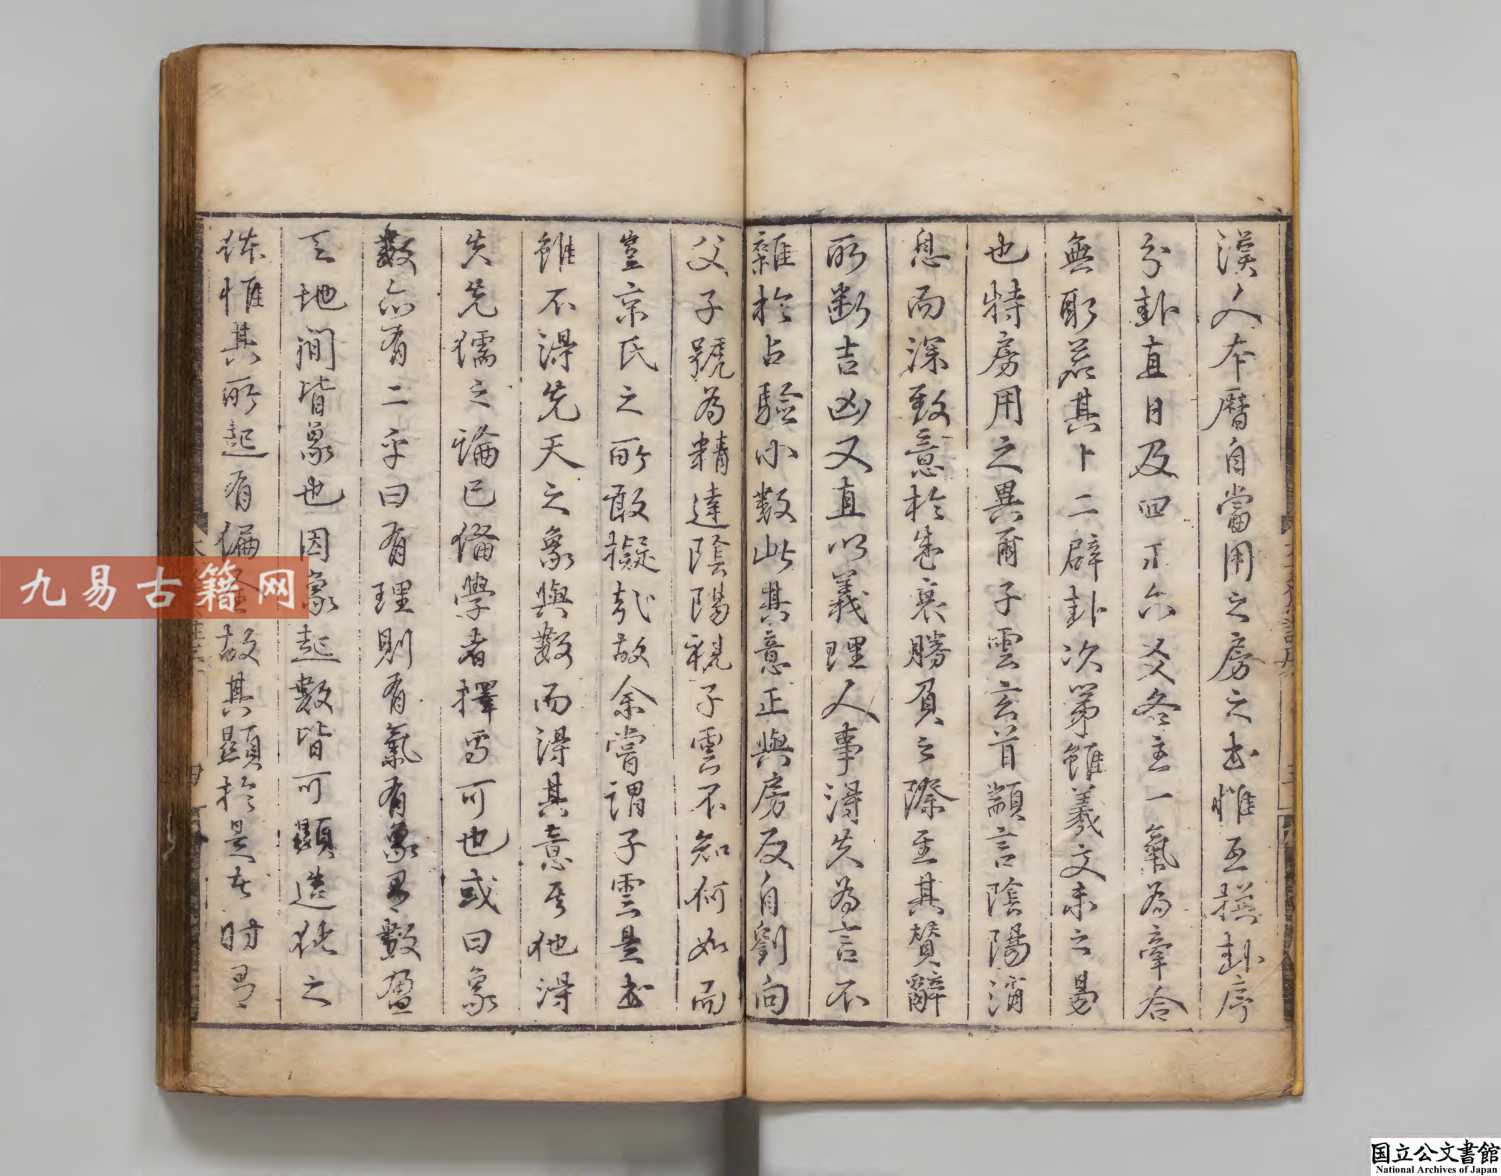 漢人本曆自當用之房之書惟互揲卦序
分卦直日及四正六爻各主一氣為牽合
無取焉其卜二辟卦次第雖羲文系之易
也特房用之異爾子雲玄首顓言陰陽消
息而深致意於盛衰勝負之際至其贊辭
所斷吉凶又直以義理人事得失為言不
雜於占驗小數此其意正與房反自劉向
父子號為精達陰陽視子雲不知何如而
豈京氏之所敢擬哉故余嘗謂子雲是書
雖不得先天之象與數而得其意焉他得
失先儒之論已備學者擇焉可也或曰象
數亦有二乎曰有理則有氣有象有數盈
天地間皆象也因象起數皆可顯造化之
妙惟其所起有偏全故其顯於是者時有
九易古籍网
国立公文書館
National Archives of Japan